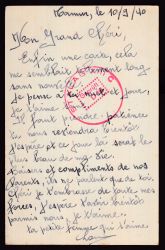 Namur, le 10/9/40
Mon Grand Chéri,
Enfin une carte, cela
me semblait tellement long
sans nouvelle
je pense à toi nuit et jour,
je t'aime
Il faut prendre patience
tu nous reviendra bientôt
j'espère et ce jour là sera le
plus beau de ma vie.
Baisers et compliments de nos
Parents, ils ne parlent que de toi,
que je t'embrasse de toute mes
forces, j'espère t'avoir bientôt
parmis nous, je t'aime
ta petite femme qui t'aime